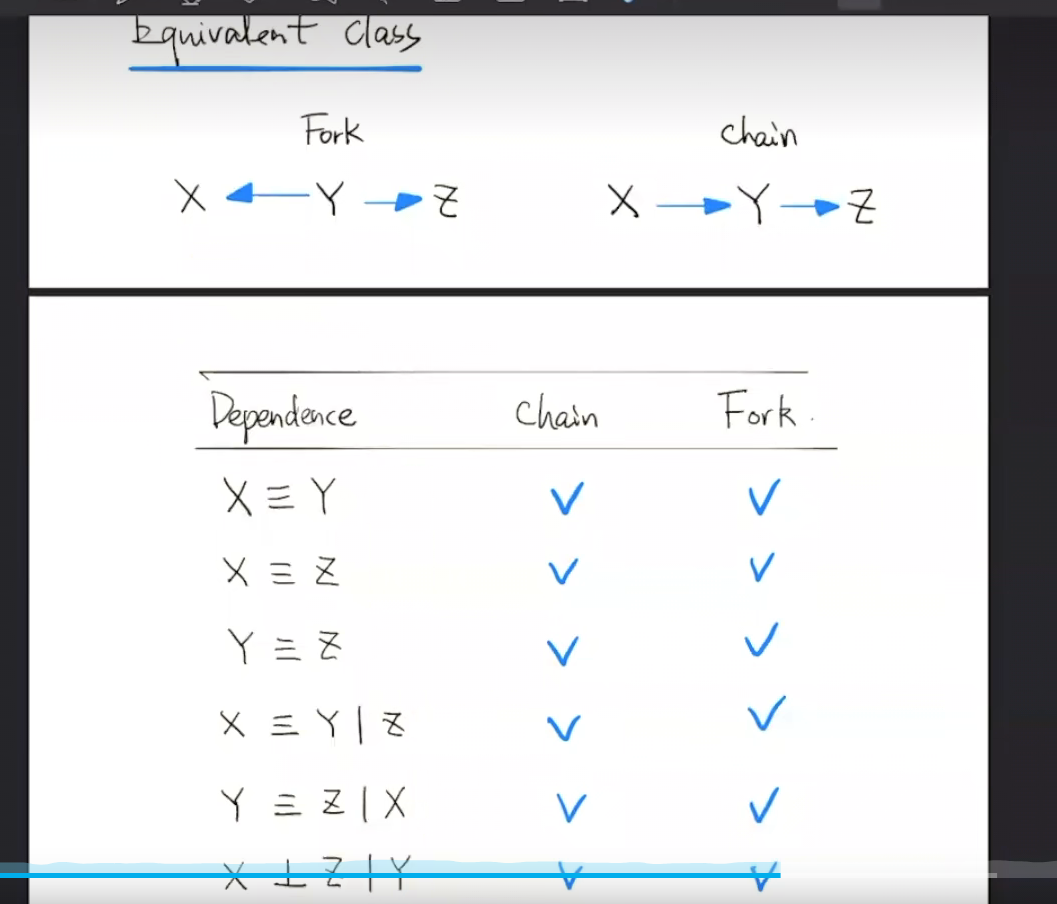 Equivalent Class
Fork
Chain
X ← Y → Z
X → Y → Z
Dependence Chain Fork.
X ≡ Y ✓ ✓
X ≡ Z ✓ ✓
Y ≡ Z ✓ ✓
X ≡ Y | Z ✓ ✓
Y ≡ Z | X ✓ ✓
X ⊥ Z | Y ✓ ✓